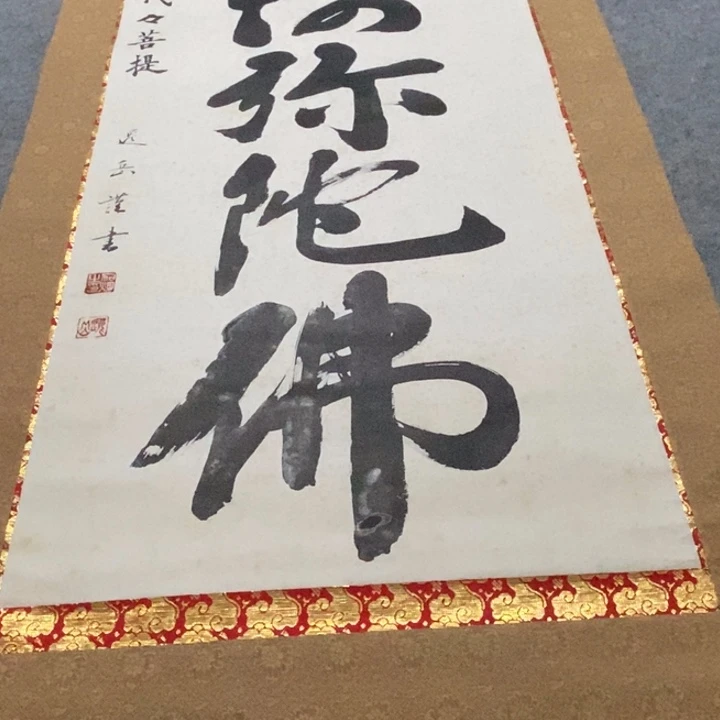 阿弥陀佛
代々菩提
謹書